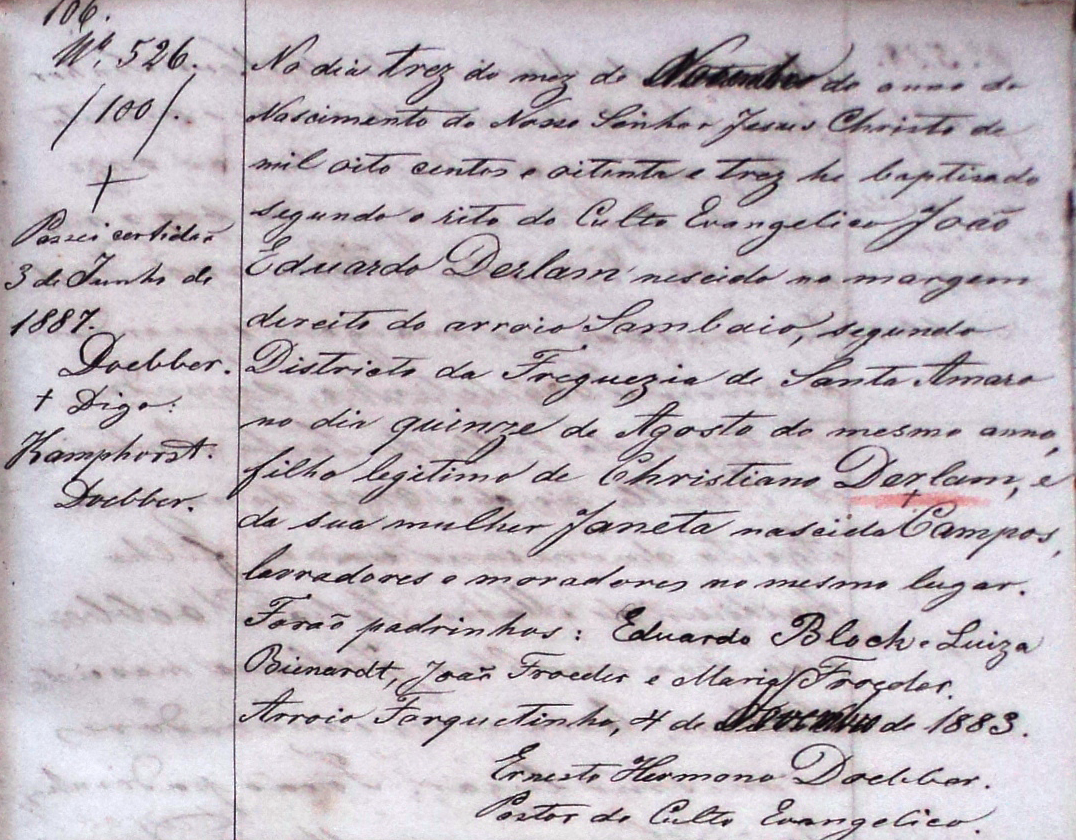 106.
Nº. 526.
/100/.
+
Passei certidão
3 de Junho de
1887.
Doebber.
+ Digo:
Kamphorst.
Doebber.
No dia trez do mez de Novembro do anno do
Nascimento de Nosso Senhor Jesus Christo de
mil oito centos e oitenta e trez he baptisado
segundo o rito do Culto Evangelico João
Eduardo Derlam nascido na margem
direita do arroio Sambaio, segundo
Districto da Freguezia de Santa Amaro
no dia quinze de Agosto do mesmo anno,
filho legitimo de Christiano Derlam, e
da sua mulher Janeta nascida + Campos,
lavradores e moradores no mesmo lugar.
Forão padrinhos: Eduardo Block e Luiza
Bienardt, João Froeder e Maria Froeder.
Arroio Forquetinha, 4 de Novembro de 1883.
Ernesto Hermano Doebber.
Pastor do Culto Evangelico.